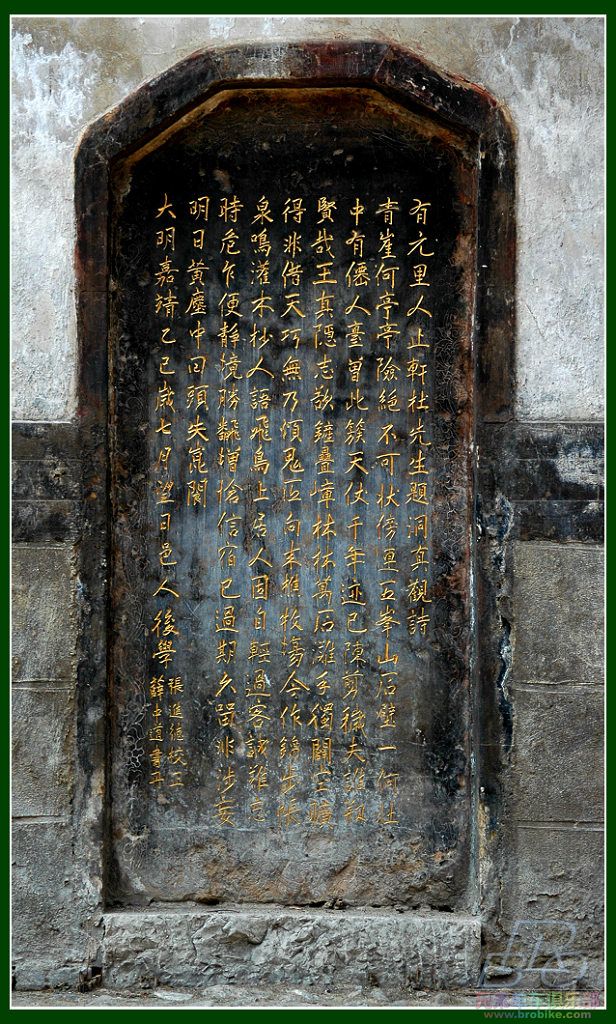 有元里人止軒杜先生題洞真觀詩
青崖何亭亭險絕不可狀傍連五峯山石壁一何壮
中有僊人臺曽此簇天仗千年迹已陳剪穢夫誰剏
賢哉王真隠志欲疊嶂林林萬石灘手獨開空曠
得非借天巧無乃煩鬼匠向来樵牧場今作步帳
泉鳴灌木杪人語飛鳥上居人固自輕過客誠難忘
時危乍便靜境勝翻增愴信宿已過期久留非涉妄
明日黄塵中囘頭失崑閬
大明嘉靖乙巳歲七月望日邑人後學
張進校工
薛中道書丹
www.brobike.com